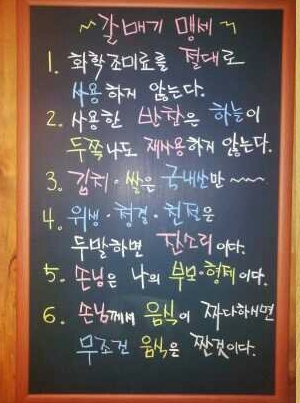 ~갈매기 맹세~
1. 화학조미료를 절대로
사용하게 않는다.
2. 사용한 반찬은 하늘이
두쪽나도 재사용하게 않는다.
3. 김치·쌀은 국내산만~~~
4. 위생·청결·친절은
두말하면 잔소리이다.
5. 손님은 나의 부모·형제이다.
6. 손님께서 음식이 짜다하시면
무조건 음식은 짠것이다.